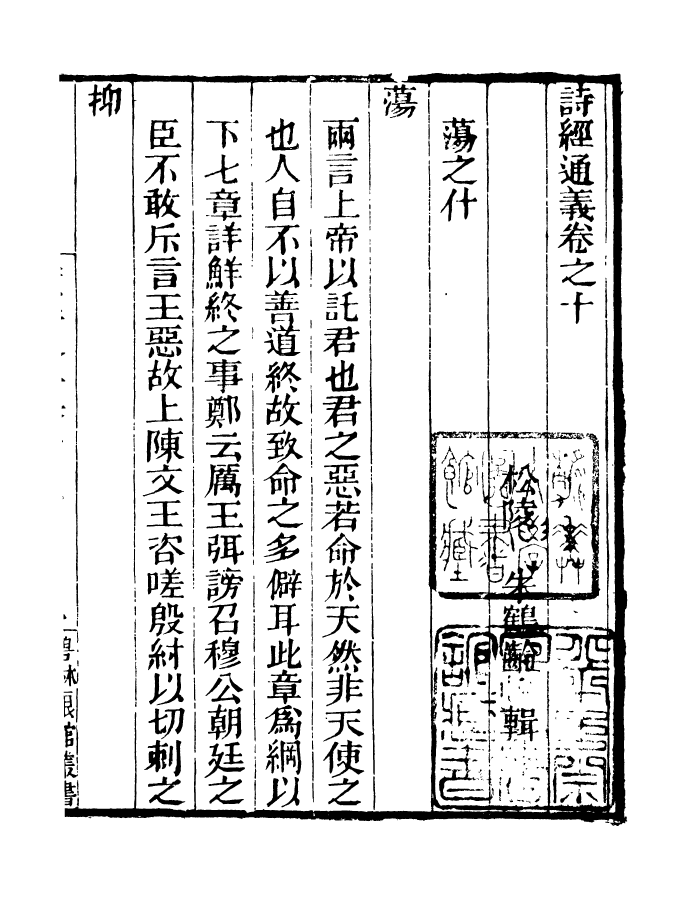 詩經通義卷之十
松陵朱鶴齡輯
蕩之什
蕩
兩言上帝以託君也君之惡若命於天然非天使之
也人自不以善道終故致命之多僻耳此章爲綱以
下七章詳鮮終之事鄭云厲王弭謗召穆公朝廷之
臣不敢斥言王惡故上陳文王咨嗟殷紂以切刺之
抑